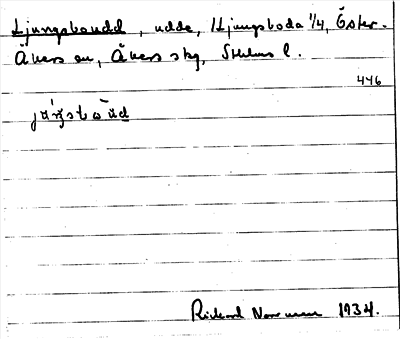 Ljungsboudd, udde, Ljungsboda 1/4, Öster-
Åkers sn, Åkers skg, Sthlms l.
446
Rickard Norrman 1934.